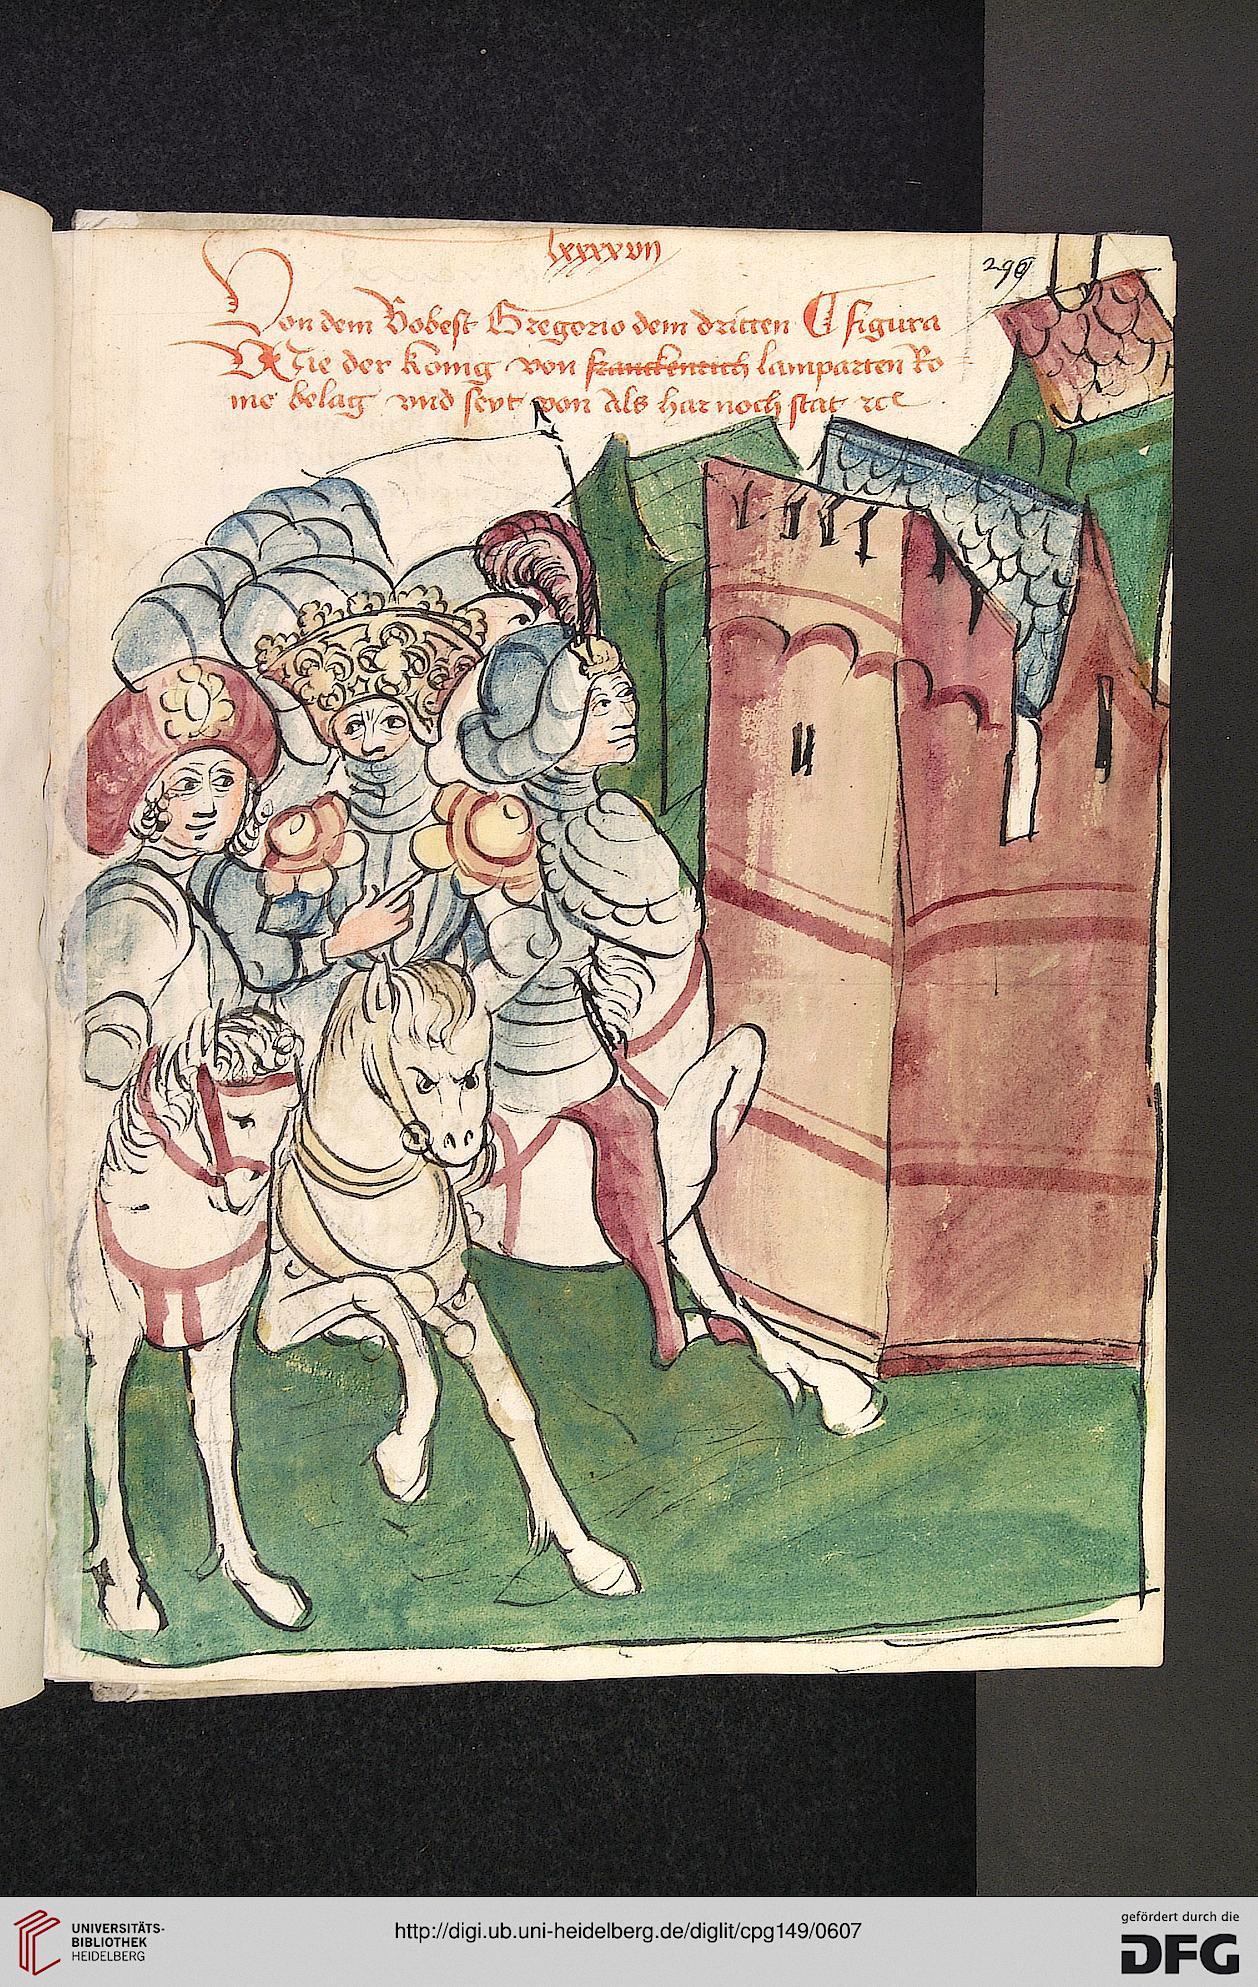 lxxxxvij
296
Von dem Bobest Gregorio dem dritten ¶ figura
Wie der kónig von franckenrich lamparten Ro
me belag vnd seyt von Als har noch stat ⁊c
UNIVERSITÄTS-
BIBLIOTHEK
HEIDELBERG
http://digi.ub.uni-heidelberg.de/diglit/cpg149/0607
gefördert durch die
DFG